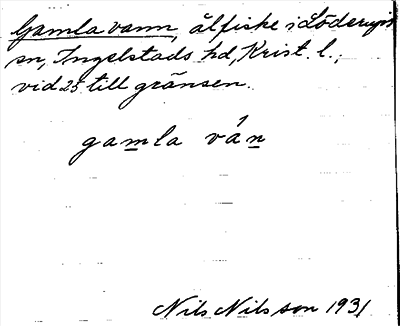 Gamla vann, ålfiske i Löderups
sn, Ingelstads hd, Krist. l.,
vid 25 till gränsen.
gamla ván
Nils Nilsson 1931